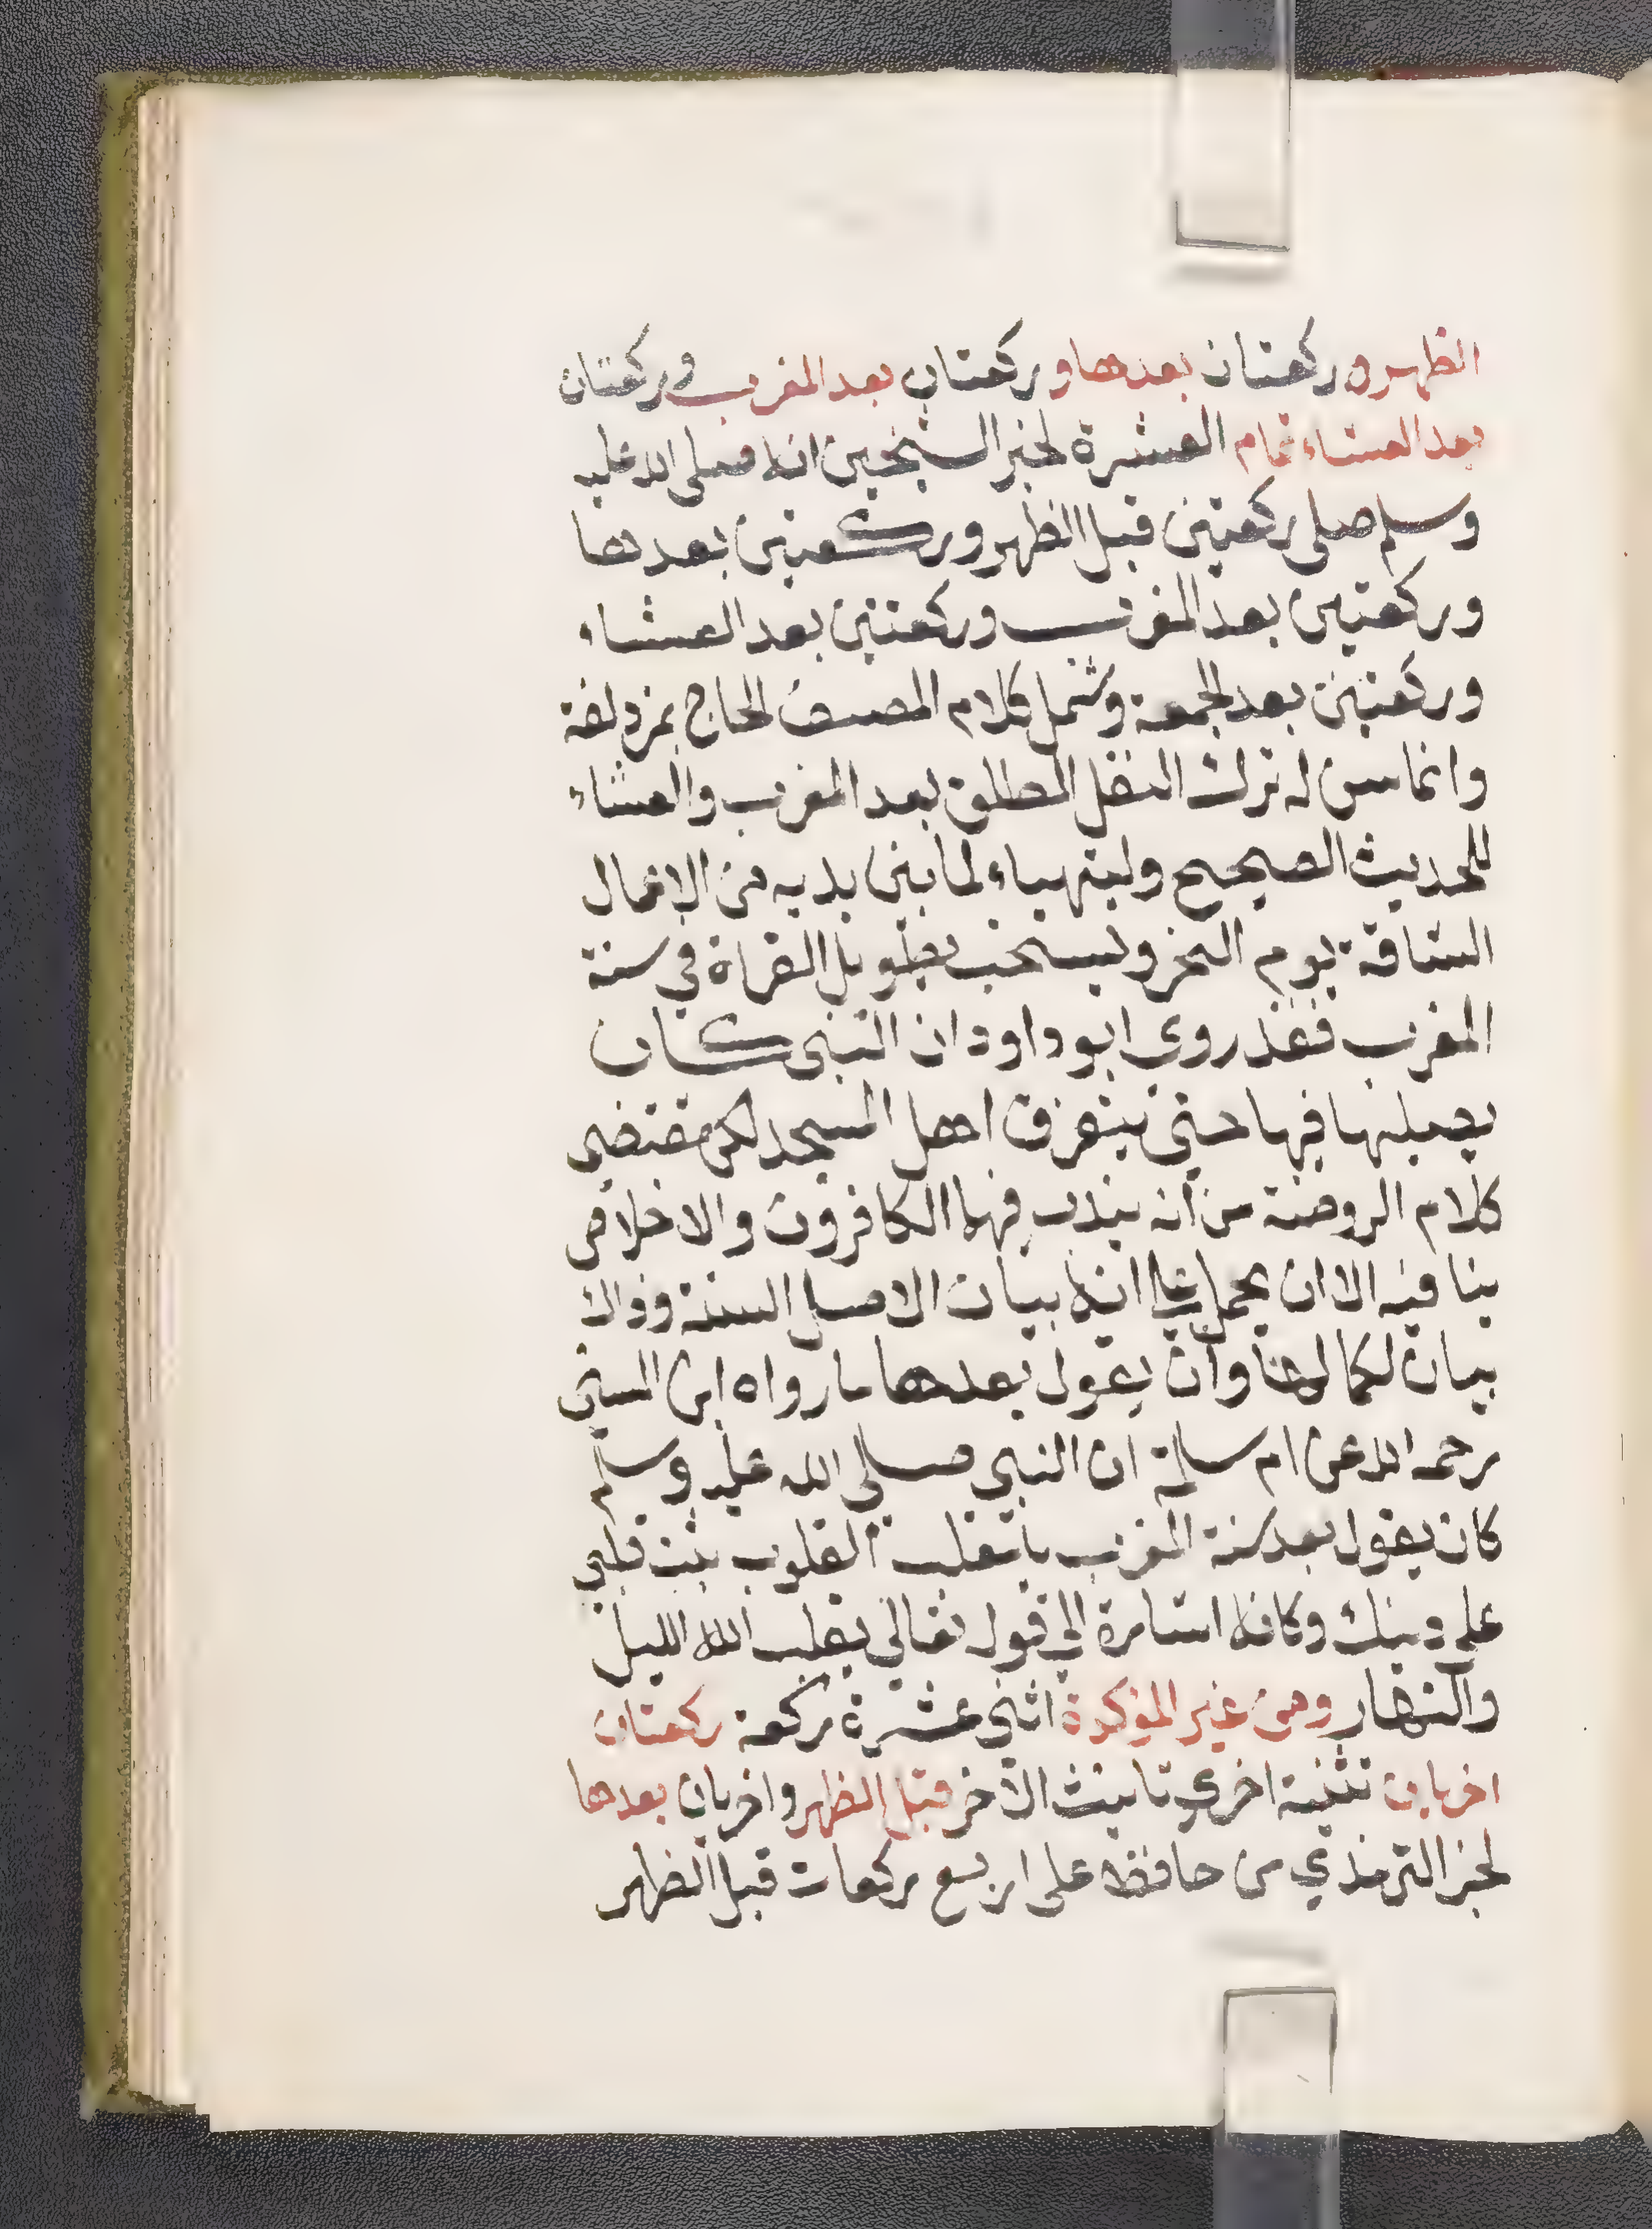 الظهر و ركعتان بعدها و ركعتان بعد المغرب و ركعتان
بعد العشاء تمام العشرة لخبر الشيخين انه صلى الله عليه
وسلم صلى ركعتين قبل الظهر وركعتين بعدها
وركعتين بعد المغرب وركعتين بعد العشاء
وركعتين بعد الجمعة وشمل كلام المصنف الحاج بمزدلفة
وانما سن له ترك النفل المطلق بعد المغرب والعشاء
للحديث الصحيح وليتهياء لما بين يديه من الاعمال
الشاقة يوم النحر ويستحب تطويل القراة في سنة
المغرب فقد روى ابو داود ان النبي كان
يصليها فيها حتى يتفرق اهل المسجد لكن مقتضى
كلام الروضة من انه يندب فيها الكافرون والاخلاص
ينافيه الا ان يحمل على انه بيان الاصل السنة وذاك
بيان لكمالها وان يقول بعدها ما رواه ابن السني
رحمه الله عن ام سلمة ان النبي صلي الله عليه وسلم
كان يقول بعد سنة المغرب يا مقلب القلوب ثبت قلبي
على دينك وكانه اشارة الي قوله تعالي يقلب الله الليل
والنهار ومن غير المؤكدة اثني عشرة ركعة ركعتان
اخريان تثنية اخري تانيث الآخر قبل الظهر واخريان بعدها
لخبر الترمذي من حافظ على اربع ركعات قبل الظهر